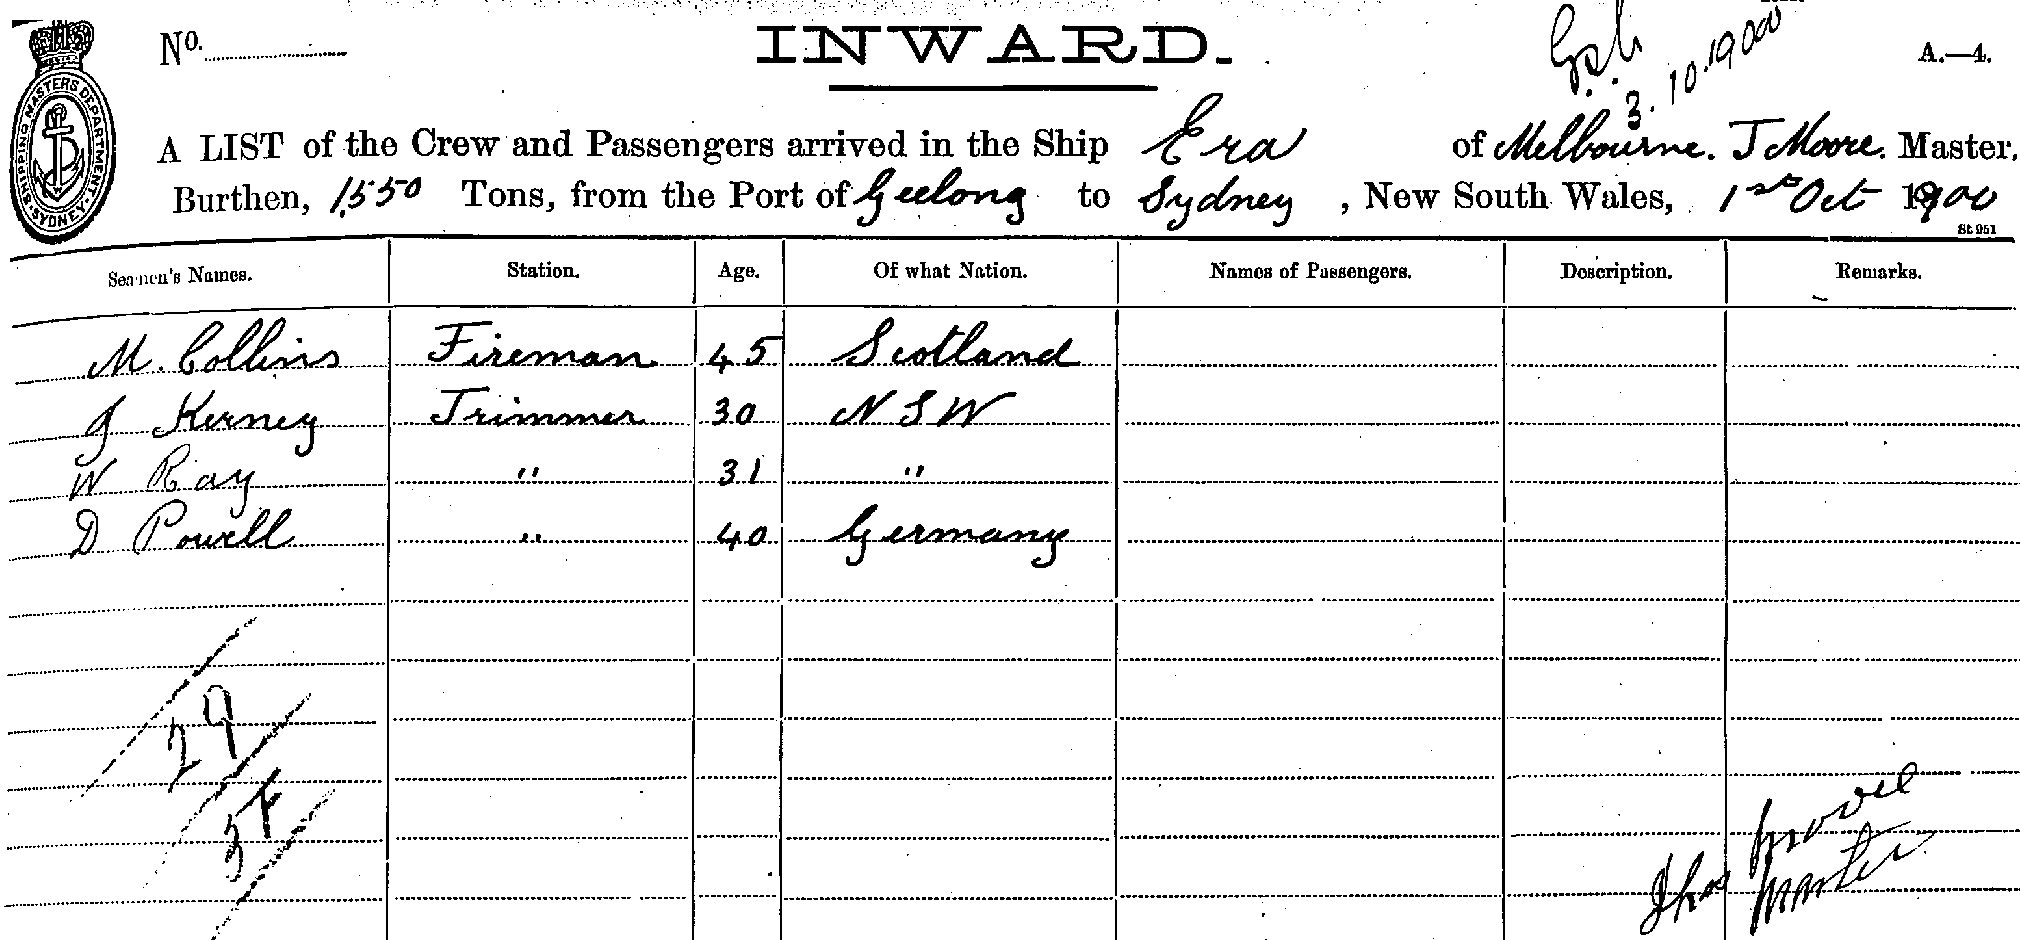 No.
INWARD.
3.10.1900
A.—4.
SHIPPING MASTERS DEPARTMENT. SYDNEY.
A LIST of the Crew and Passengers arrived in the Ship Era of Melbourne. T Moore. Master.
Burthen, 1,550 Tons, from the Port of Geelong to Sydney, New South Wales, 1st Oct 1900
St 951
Seamen's Names. Station. Age. Of what Nation. Names of Passengers. Description. Remarks.
M. Collins Fireman 45 Scotland
J Kerney Trimmer 30 N S W
W Ray " 31 "
D Powell " 40 Germany
29
34
Thos Moore
Master